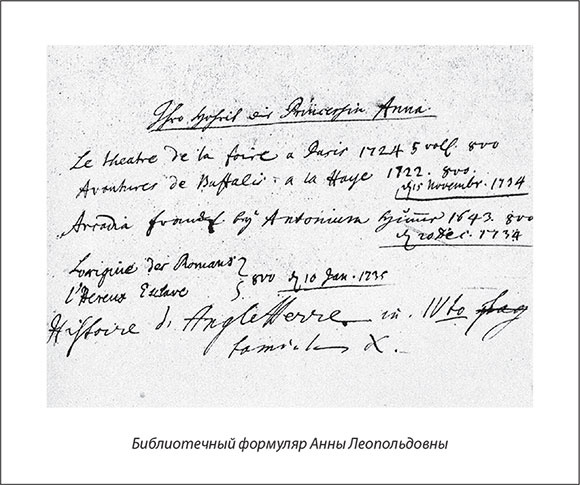 Ihro Hoheit die Princessin Anna.
Le theatre de la foire a Paris 1724 5 voll. 8vo
Avantures de Buffalis a la Haye 1722. 8vo.
d. 15 Novembr. 1734
Arcadia durch Antonium 1643. 8vo
d. 20 Dec. 1734
Lorigine des Romans
l'Hereux Esclave } 8vo d. 10 Jan. 1735
Histoire d'Angleterre in IVto
X.
Библиотечный формуляр Анны Леопольдовны